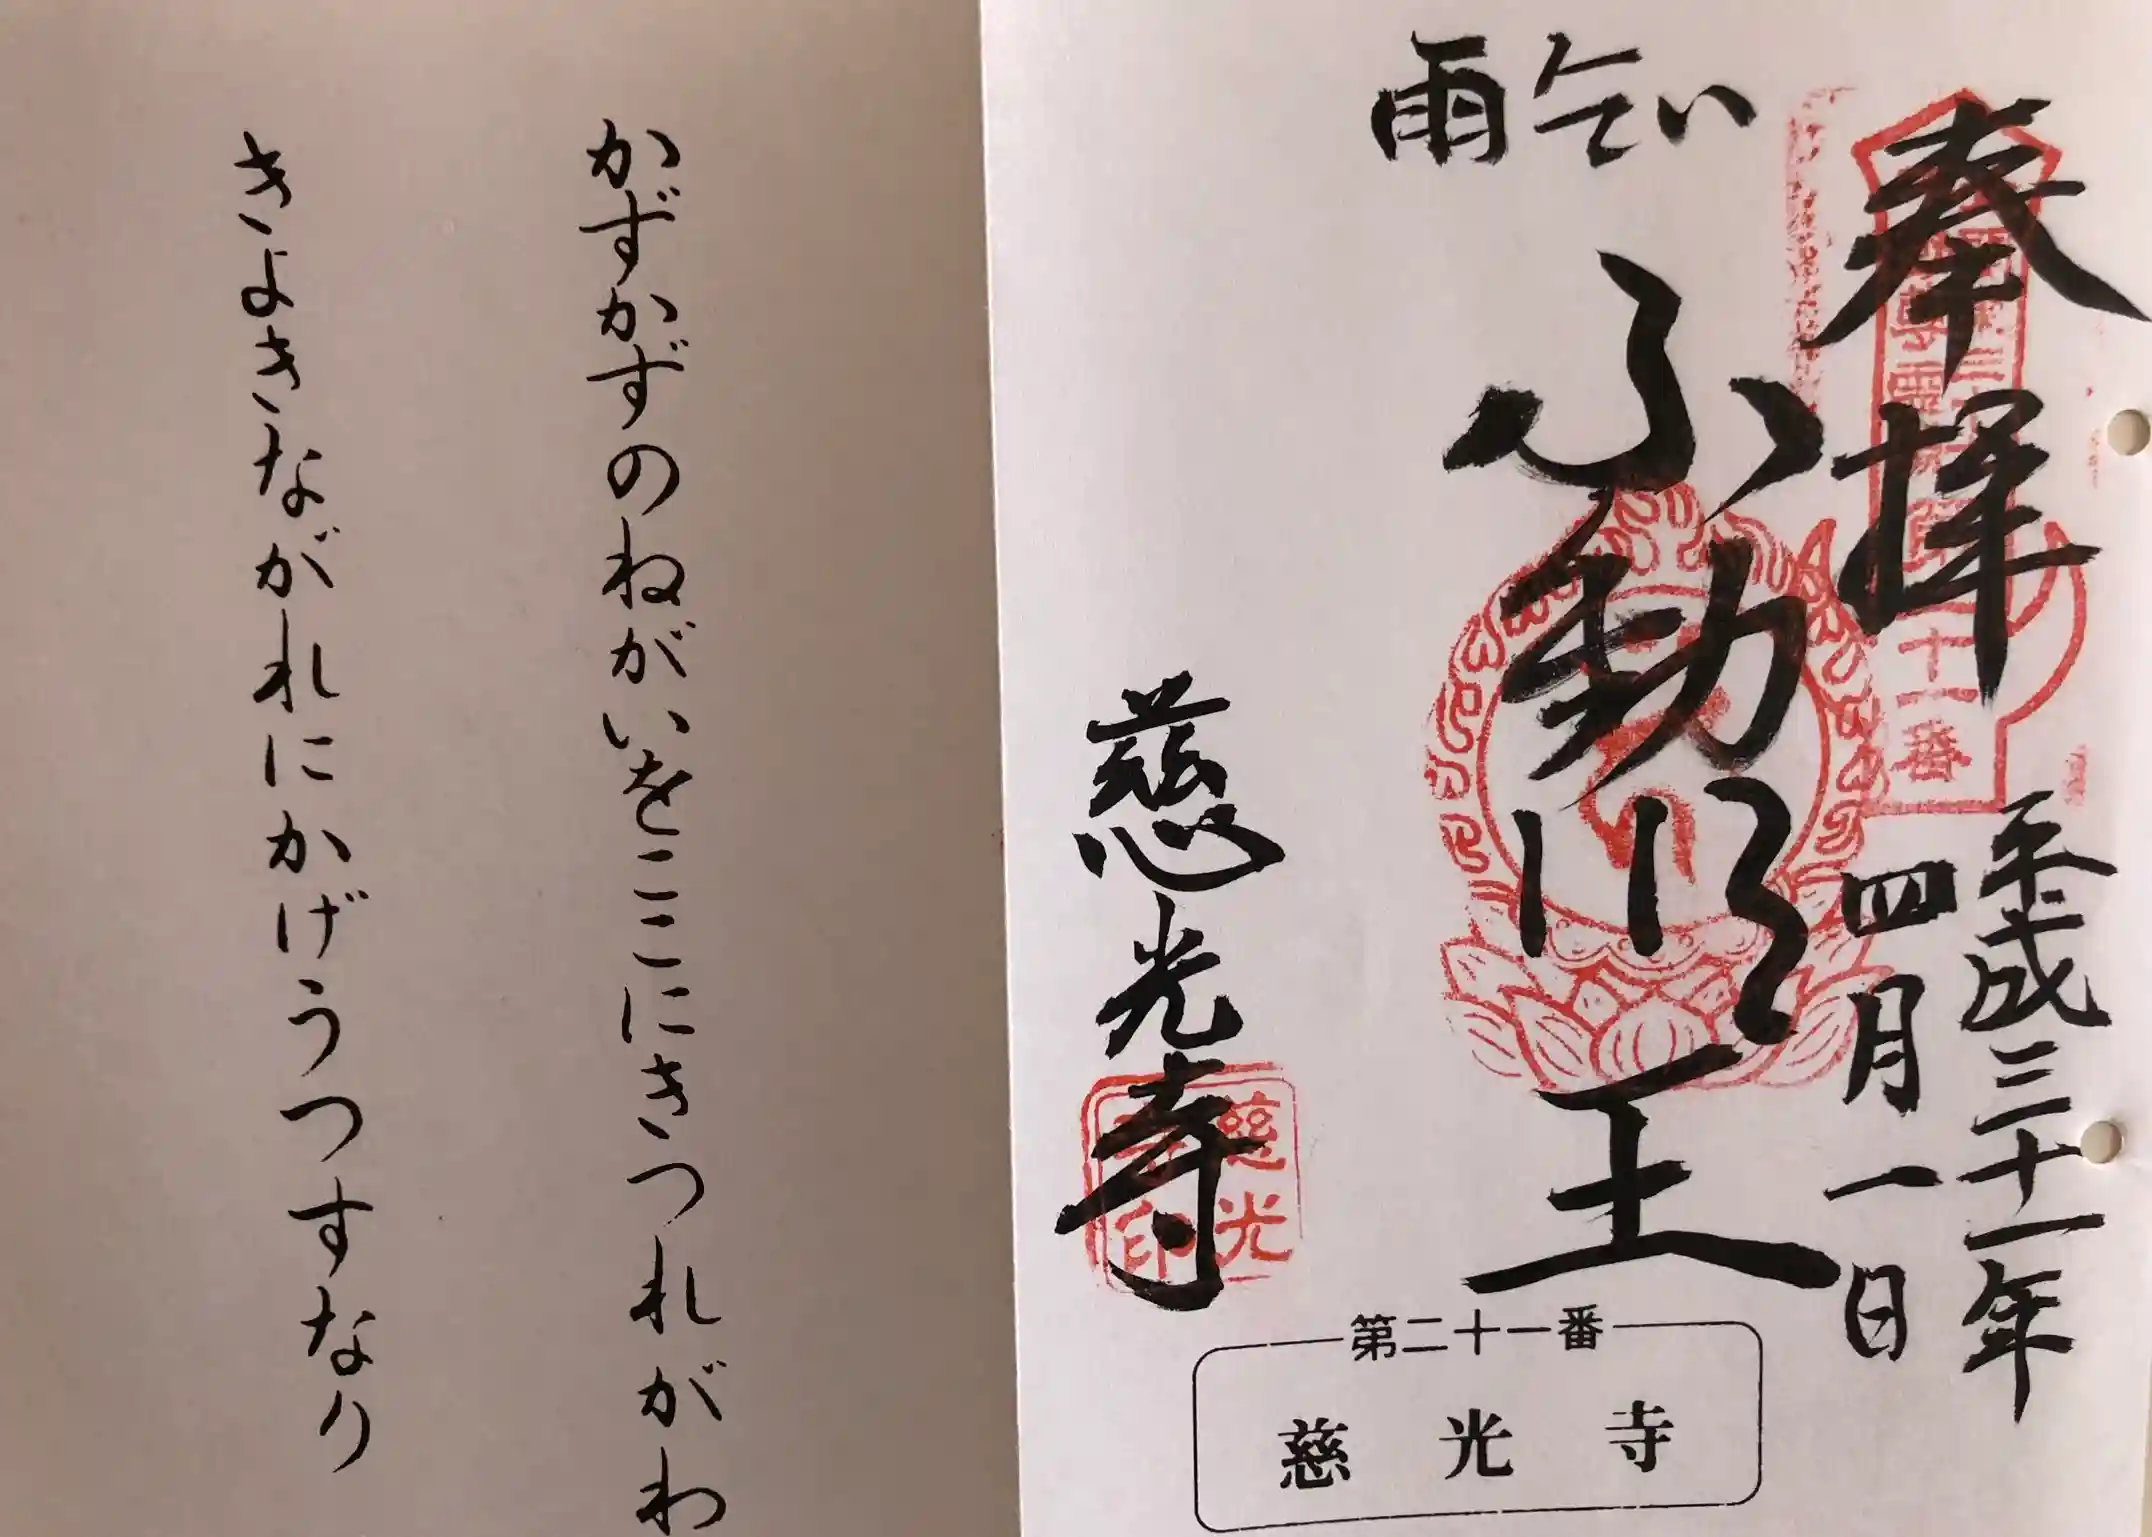 奉拝
平成三十一年
四月一日
雨乞い
ふ動明王
慈光寺
慈光
寺印
十一番
第二十一番
慈光寺
かずかずのねがいをここにきつれがわ
きよきながれにかげうつすなり